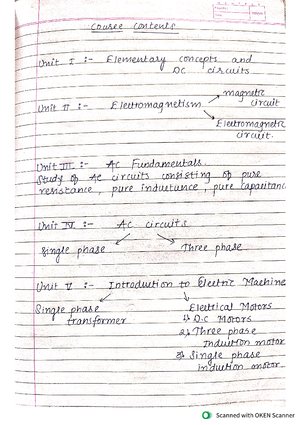 Course Contents
Unit I :- Elementary concepts and
DC circuits
Unit II :- Electromagnetism
magnetic
circuit
Electromagnetic
circuit.
Unit III :- AC Fundamentals.
Study of AC circuits consisting of pure
resistance, pure inductance, pure capacitanc
Unit IV :- AC circuits
Single phase
Three phase
Unit V :- Introduction to Electric Machine
Single phase
transformer
Electrical Motors
1) D.C Motors
2) Three phase
Induction motor
3) Single phase
induction motor.
Scanned with OKEN Scanner